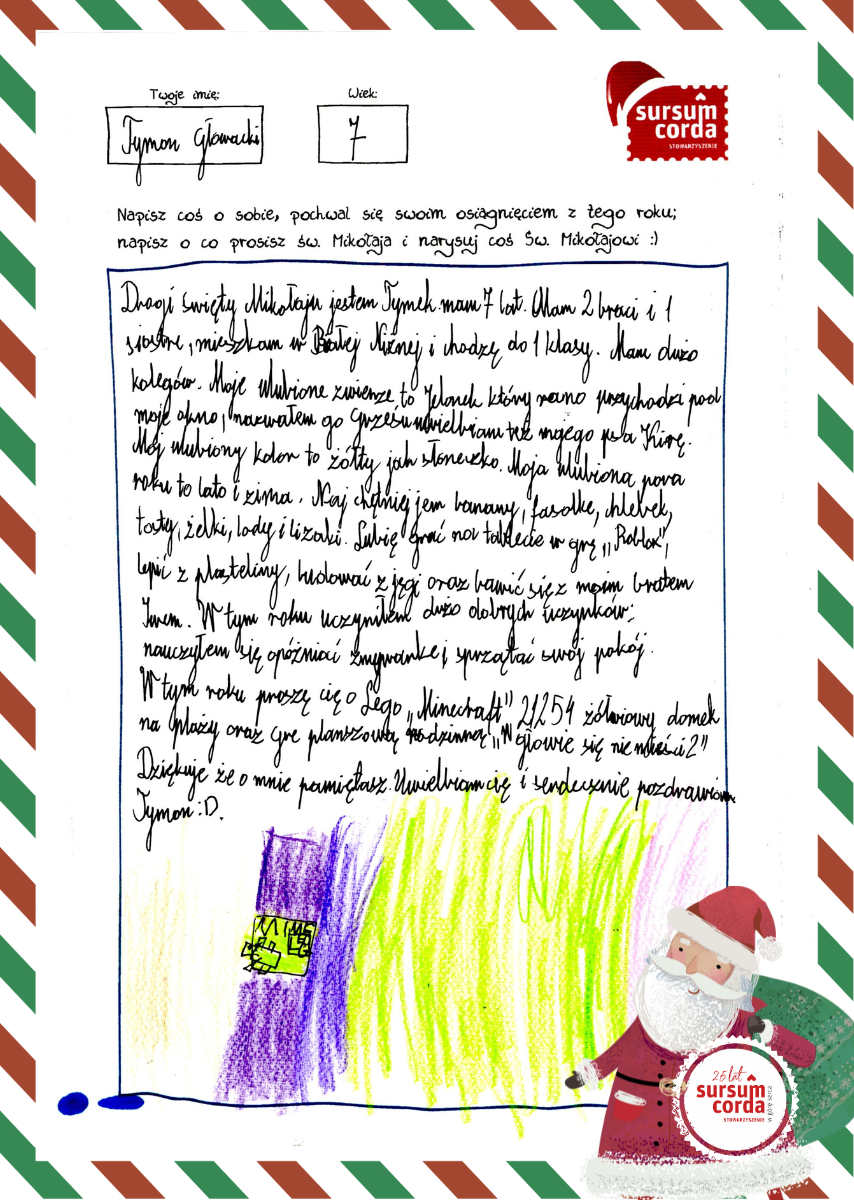 Twoje imię:
Wiek:
Tymon Głowacki
7
sursum
corda
STOWARZYSZENIE
Napisz coś o sobie, pochwal się swoim osiągnięciem z tego roku;
napisz o co prosisz św. Mikołaja i narysuj coś Św. Mikołajowi :)
Drogi święty Mikołaju jestem Tymek mam 7 lat. Mam 2 braci i 1
siostrę, mieszkam w Białej Niżnej i chodzę do 1 klasy. Mam dużo
kolegów. Moje ulubione zwierze to Jelonek który rano przychodzi pod
moje okno, nazwałem go Grzesiu uwielbiam też mojego psa Kirę.
Mój ulubiony kolor to żółty jak słoneczko. Moja ulubiona pora
roku to lato i zima. Naj chętniej jem banany, fasolkę, chlebek,
tosty, żelki, lody i lizaki. Lubię grać na tablecie w grę „Roblox",
lepić z plasteliny, budować z oraz bawić się z moim bratem
W tym roku uczyniłem dużo dobrych uczynków:
nauczyłem się opóźniać zmywankę i sprzątać swój pokój.
W tym roku proszę cię o Lego „Minecraft" 21254 żółwiowy domek
na plaży oraz grę planszową rodzinną „W głowie się nie mieści 2"
Dziękuje że o mnie pamiętasz. Uwielbiam cię i serdecznie pozdrawiam
Tymon :D.
25 lat
sursum
corda
STOWARZYSZENIE
w górę serca